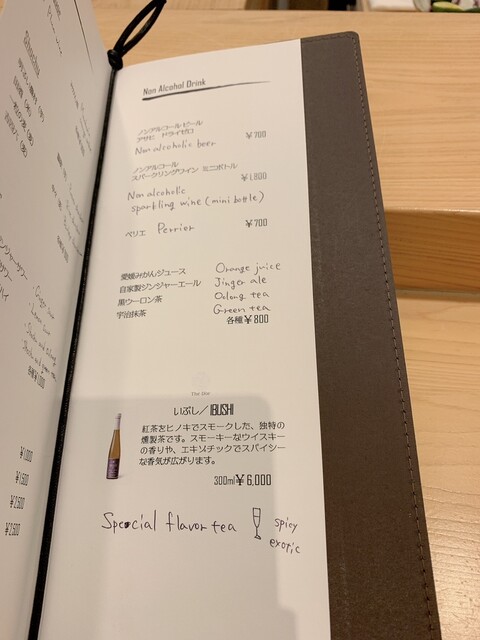 Non Alcohol Drink
ノンアルコールビール
アサヒ ドライゼロ ¥700
Non alcoholic beer
ノンアルコール
スパークリングワイン ミニボトル
¥1,800
Non alcoholic
sparkling wine (mini bottle)
¥700
ペリエ Perrier
愛媛みかんジュース Orange juice
自家製ジンジャーエール Jinger ale
黒ウーロン茶 Oolong tea
宇治抹茶 Green tea
各種¥800
いぶし/IBUSHI
紅茶をヒノキでスモークした、独特の
燻製茶です。スモーキーなウイスキー
の香りや、エキゾチックでスパイシー
な香気が広がります。
300ml¥6,000
Special flavor tea
spicy
exotic
¥1,000
¥1,500
¥2,500
¥2,500